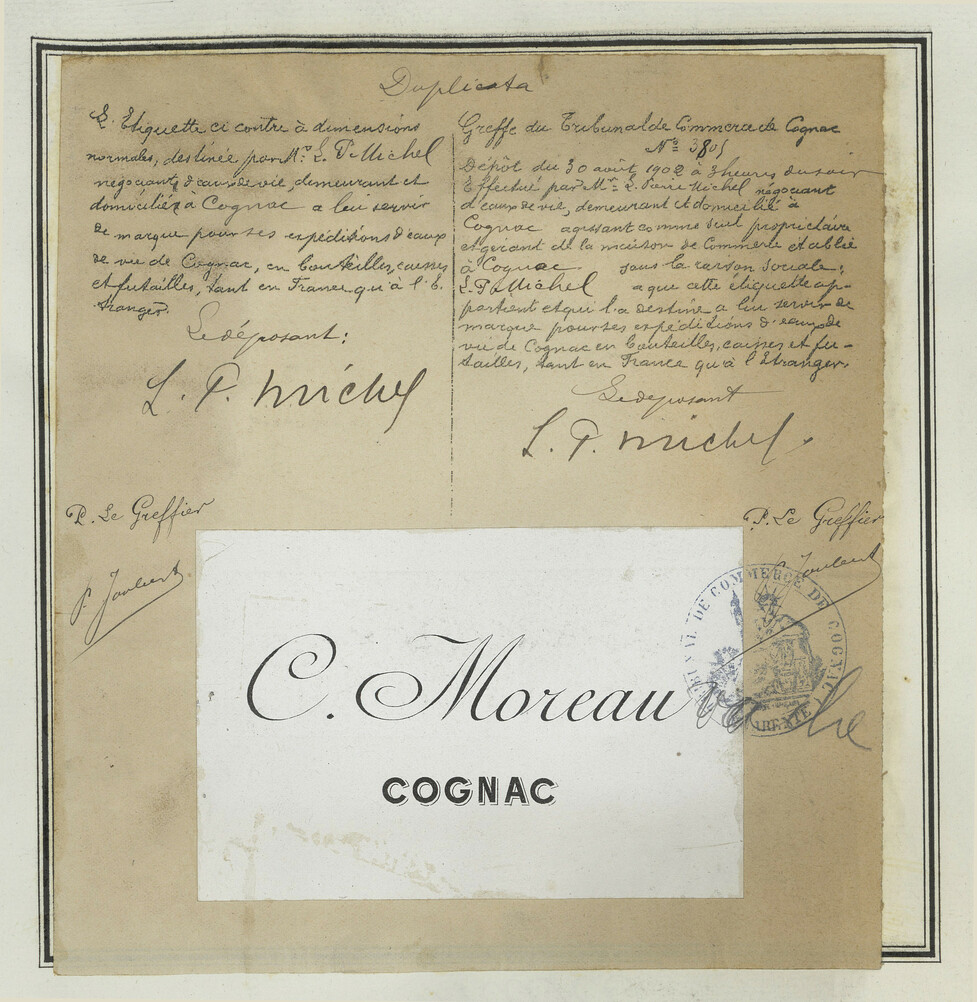 Duplicata
L'Etiquette ci contre à dimensions
normales, destinée par Mr. L. P. Michel
négociant d'eaux de vie, demeurant et
domicilié à Cognac a lui servir
de marque pour ses expéditions d'eaux
de vie de Cognac, en bouteilles, caisses
et futailles, tant en France qu'à l'É-
tranger.
Le déposant:
L. P. Michel
P. Le Greffier
P. Joubert
Greffe du Tribunal de Commerce de Cognac
No 3805
Dépôt du 30 août 1902 à 3 heures du soir
Effectué par Mr. L. Pierre Michel négociant
d'eaux de vie, demeurant et domicilié à
Cognac agissant comme seul propriétaire
et gérant de la maison de Commerce établie
à Cognac sous la raison sociale;
L. P. Michel a que cette étiquette ap-
partient et qu'il l'a destine a lui servir de
marque pour ses expéditions d'eaux de
vie de Cognac en bouteilles, caisses et fu-
tailles, tant en France qu'à l'Etranger.
Le déposant
L. P. Michel
P. Le Greffier
Joubert
TRIBUNAL DE COMMERCE DE COGNAC
CHARENTE
C. Moreau
COGNAC